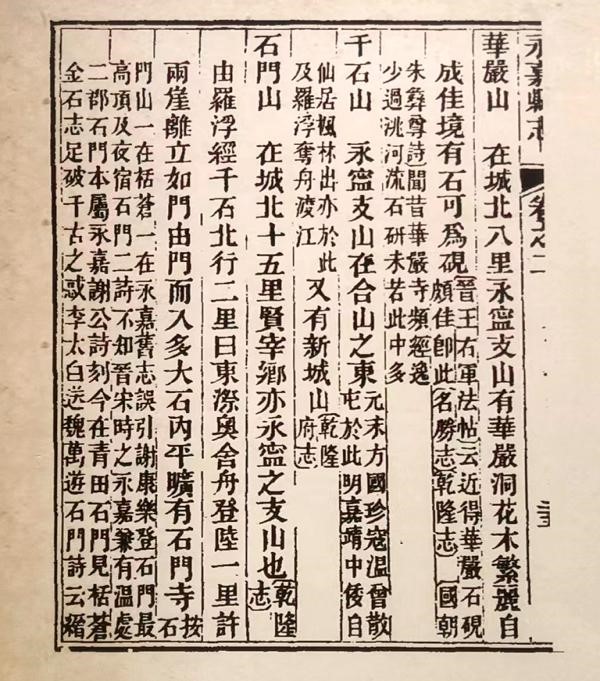 永嘉縣志 卷之二
華嚴山 在城北八里永寍支山有華嚴洞花木繁麗自
成佳境有石可爲硯晉王右軍法帖云近得華嚴石硯頗佳卽此名勝志乾隆志 國朝
朱彝尊詩聞昔華嚴寺頻經逸
少過洮河流石硏未若此中多
千石山 永寍支山在合山之東元末方國珍寇溫曾散屯於此明嘉靖中倭自
仙居楓林出亦於此及羅浮奪舟渡江 又有新城山乾隆府志
石門山 在城北十五里賢宰鄉亦永寍之支山也乾隆志
由羅浮經千石北行二里曰東際奧舍舟登陸一里許
兩崖離立如門由門而入多大石內平曠有石門寺按石
門山一在栝蒼一在永嘉舊志誤引謝康樂登石門最
高頂及夜宿石門二詩不知晉宋時之永嘉兼有溫處
二郡石門本屬永嘉謝公詩刻今在青田石門見栝蒼
金石志足破千古之惑李太白送魏萬遊石門詩云縉